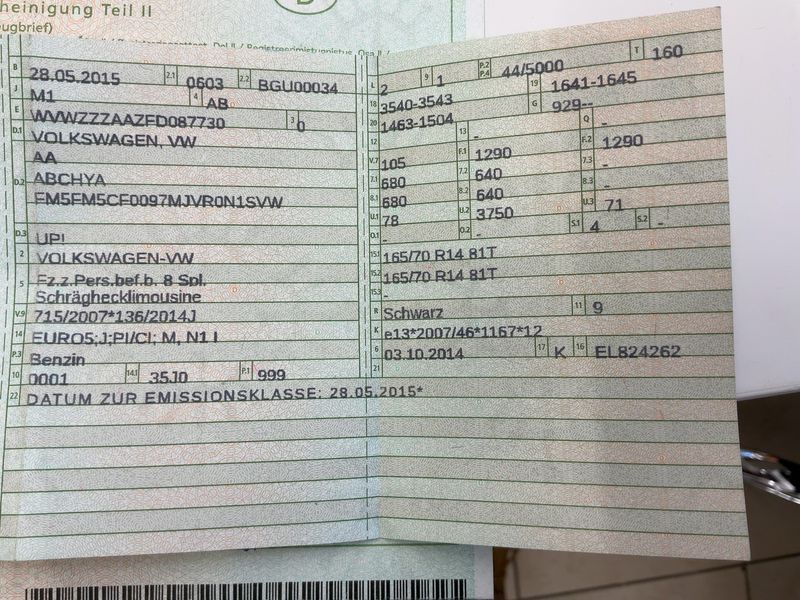 heinigung Teil II
ugbrief)
B 28.05.2015 2.1 0603 2.2 BGU00034
J M1 4 AB
E WVWZZZAAZFD087730 3 0
D.1 VOLKSWAGEN, VW
AA
D.2 ABCHYA
FM5FM5CF0097MJVR0N1SVW
D.3 UP!
2 VOLKSWAGEN-VW
5 Fz.z.Pers.bef.b. 8 Spl.
Schräghecklimousine
V.9 715/2007*136/2014J
14 EURO5;J;PI/CI; M, N1 I
P.3 Benzin
10 0001 14.1 35J0 P.1 999
22 DATUM ZUR EMISSIONSKLASSE: 28.05.2015*
L 2 9 1 P.2 P.4 44/5000 T 160
18 3540-3543 19 1641-1645
20 1463-1504 G 929--
12 - 13 - Q -
V.7 105 F.1 1290 F.2 1290
7.1 680 7.2 640 7.3 -
8.1 680 8.2 640 8.3 -
U.1 78 U.2 3750 U.3 71
O.1 - O.2 - S.1 4 S.2 -
15.1 165/70 R14 81T
15.2 165/70 R14 81T
15.3 -
R Schwarz 11 9
K e13*2007/46*1167*12
6 03.10.2014 17 K 16 EL824262
21